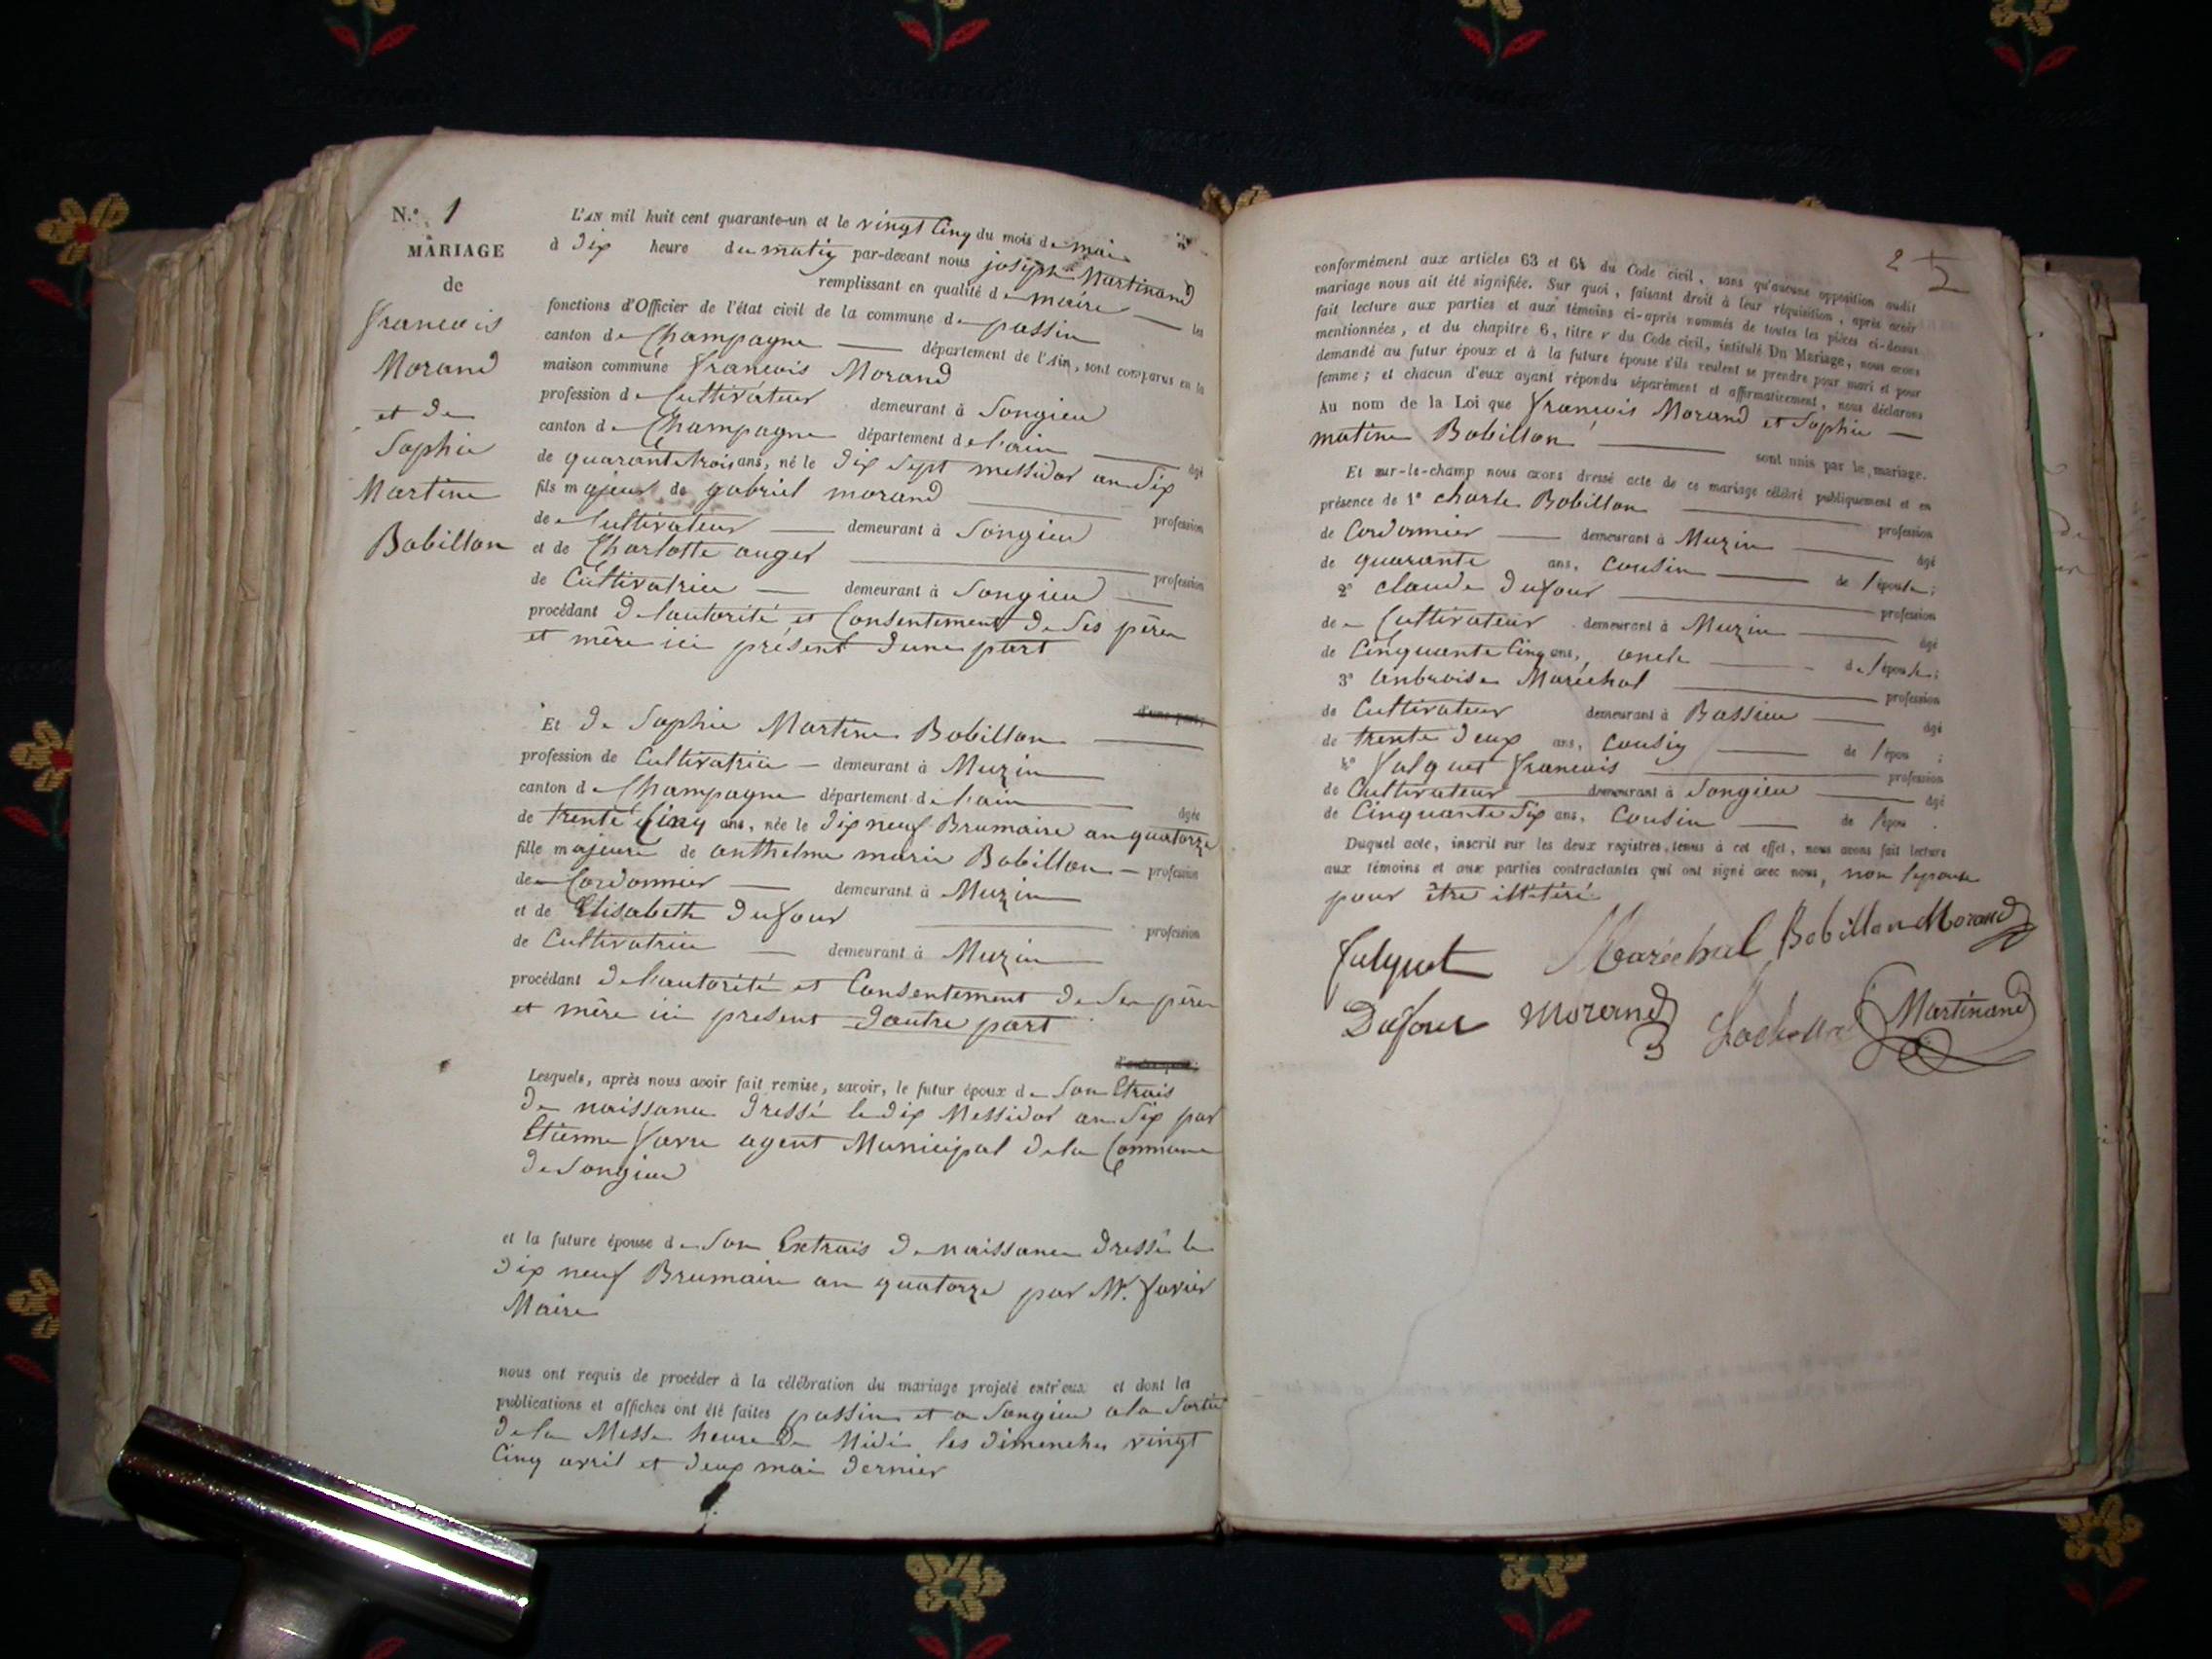 N.° 1
MARIAGE
de
francois
Morand
et de
Sophie
Martine
Bobillon
L'AN mil huit cent quarante-un et le vingt Cinq du mois de mai
à dix heure du matin par-devant nous joseph Martinand
remplissant en qualité de maire les
fonctions d'Officier de l'état civil de la commune de passin
canton de Champagne département de l'Ain, sont comparus en la
maison commune francois Morand
profession de Cultivateur demeurant à Songieu
canton de Champagne département de l'ain âgé
de quarante trois ans, né le dix sept messidor an Six
fils majeur de gabriel morand profession
de Cultivateur demeurant à Songieu
et de Charlotte auger profession
de Cultivatrice demeurant à Songieu
procédant de lautorité et Consentement de Ses père
et mère ici présent dune part
d'une part;
Et de Sophie Martine Bobillon
profession de Cultivatrice demeurant à Muzin
canton de Champagne département de l'ain âgée
de trente Cinq ans, née le dix neuf Brumaire an quatorze
fille majeure de anthelme marie Bobillon profession
de Cordonnier demeurant à Muzin
et de Elisabeth dufour profession
de Cultivatrice demeurant à Muzin
procédant de l'autorité et Consentement de Ses père
et mère ici present dautre part
d'autre part;
Lesquels, après nous avoir fait remise, savoir, le futur époux de Son Etrais
de naissance dressé le dix Messidor an Six par
Etienne favre agent Municipal de la Commune
de Songieu
et la future épouse de Son Extrais de naissance dressé le
dix neuf Brumaire an quatorze par Mr. favier
Maire
nous ont requis de procéder à la célébration du mariage projeté entr'eux et dont les
publications et affiches ont été faites passin et a Songieu a la Sortie
de la Messe heure de Midi les dimenches vingt
Cinq avril et deux mai dernier
2
conformément aux articles 63 et 64 du Code civil, sans qu'aucune opposition audit
mariage nous ait été signifiée. Sur quoi, faisant droit à leur réquisition, après avoir
fait lecture aux parties et aux témoins ci-après nommés de toutes les pièces ci-dessus
mentionnées, et du chapitre 6, titre v du Code civil, intitulé Du Mariage, nous avons
demandé au futur époux et à la future épouse s'ils veulent se prendre pour mari et pour
femme; et chacun d'eux ayant répondu séparément et affirmativement, nous déclarons
Au nom de la Loi que francois Morand et Sophie
matine Bobillon sont unis par le mariage.
Et sur-le-champ nous avons dressé acte de ce mariage célébré publiquement et en
présence de 1° charle Bobillon profession
de Cordonnier demeurant à Muzin âgé
de quarante ans, cousin de l'épouse;
2° claude dufour profession
de Cultivateur demeurant à Muzin âgé
de Cinquante Cinq ans, oncle de l'épouse;
3° Anbroise Maréchal profession
de Cultivateur demeurant à Bassieu âgé
de trente deux ans, cousin de l'épou ;
4° fulquet francois profession
de Cultivateur demeurant à Songieu âgé
de Cinquante Six ans, Cousin de l'épou .
Duquel acte, inscrit sur les deux registres tenus à cet effet, nous avons fait lecture
aux témoins et aux parties contractantes qui ont signé avec nous, non lepouse
pour être illitéré
fulquet Maréchal Bobillon Morand
Dufour Morand Martinand